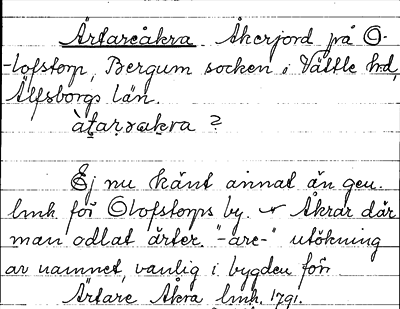 Ärtareåkra Åkerjord på O-
-lofstorp, Bergum socken i Vättle hrd,
Älfsborgs län.
àt̠ar̠åk̠ra ?
Ej nu känt annat än gen.
lmh. för Olofstorps by. Åkrar där
man odlat ärter. "-are-" utökning
av namnet, vanlig i bygden för
Ärtare Åkra lmh. 1791.